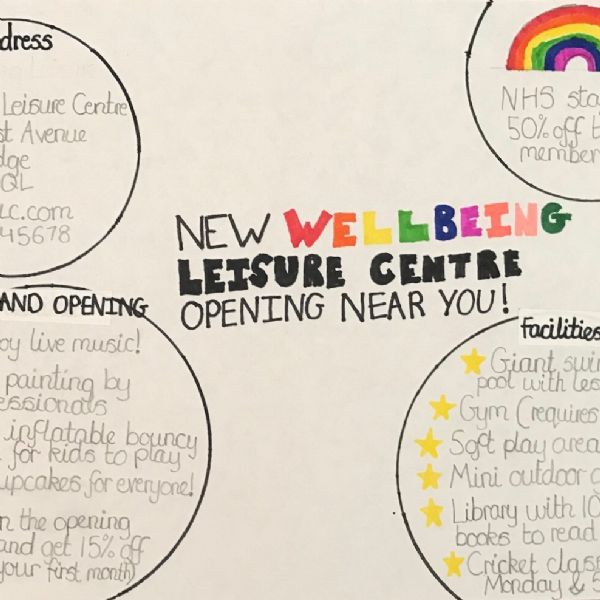 dress
Leisure Centre
st Avenue
dge
QL
LC.com
45678
NHS sta
50% off t
member
NEW WELLBEING
LEISURE CENTRE
OPENING NEAR YOU!
AND OPENING
oy live music!
painting by
essionals
inflatable bouncy
for kids to play
upcakes for everyone!
n the opening
and get 15% off
your first month)
Facilities
Giant swi
pool with les
Gym (requires
Soft play area
Mini outdoor
Library with 10
books to read
Cricket class
Monday &